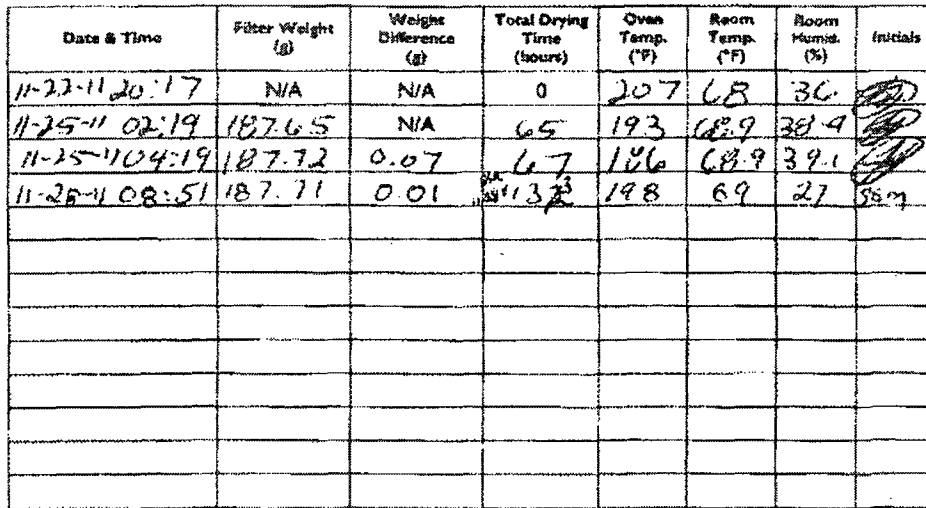 Date & Time Filter Weight (g) Weight Difference (g) Total Drying Time (hours) Oven Temp. (°F) Room Temp. (°F) Room Humid. (%) Initials
11-22-11 20:17 N/A N/A 0 207 68 36.
11-25-11 02:19 187.65 N/A 65 193 68.9 38.9
11-25-11 04:19 187.72 0.07 67 68.9 39.1
11-28-11 08:51 187.71 0.01 198 69 27